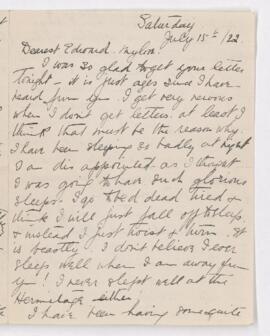 Saturday
July 15th /22
Dearest Edward
I was so glad to get your letter
tonight – it is just ages since I have
heard from you. I get very nervous
when I don't get letters. at least I
think that must be the reason why.
I have been sleeping so badly at night
I am disappointed as I thought
I was going to have such glorious
sleeps. I go to bed dead tired &
think I will just fall off to sleep
& instead I just twist & turn. It
is beastly. I don't believe I ever
sleep well when I am away from
you! I never slept well at the
Hermitage either.
I have been having some quite